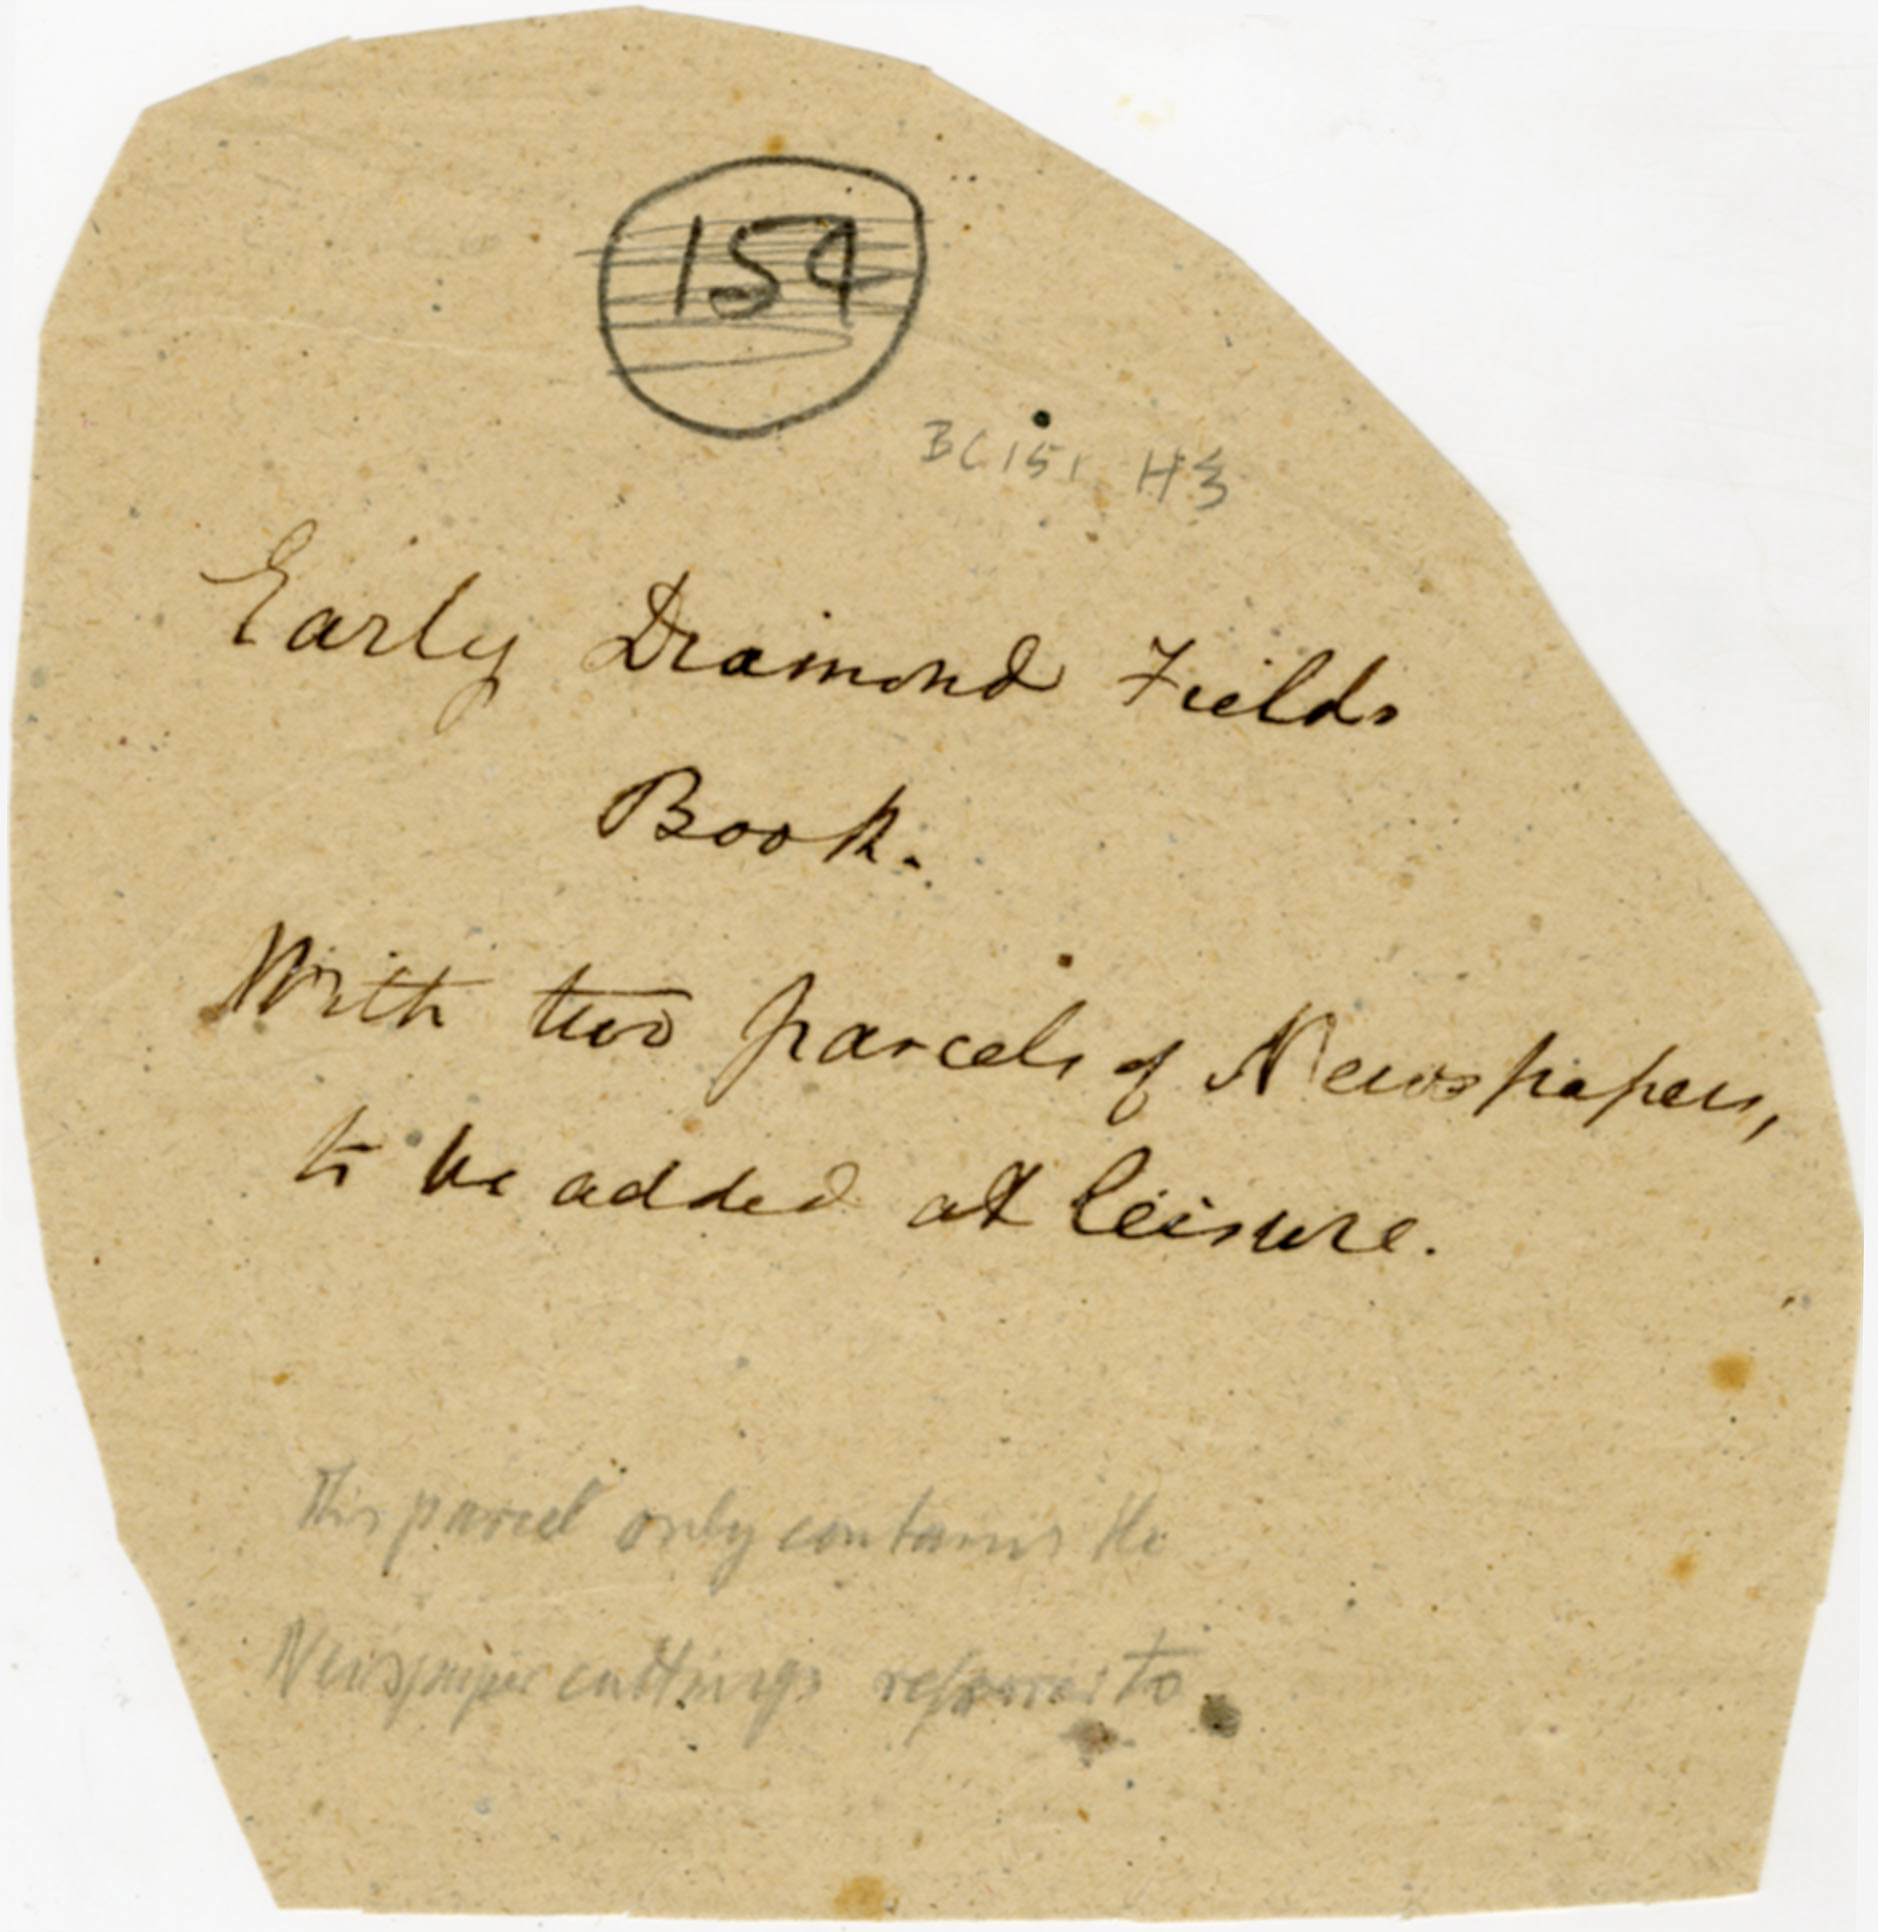 154
BC151 H3
Early Diamond Fields
Book.
With two parcels of Newspapers,
to be added at leisure.
This parcel only contains the
Newspaper cuttings referred to.